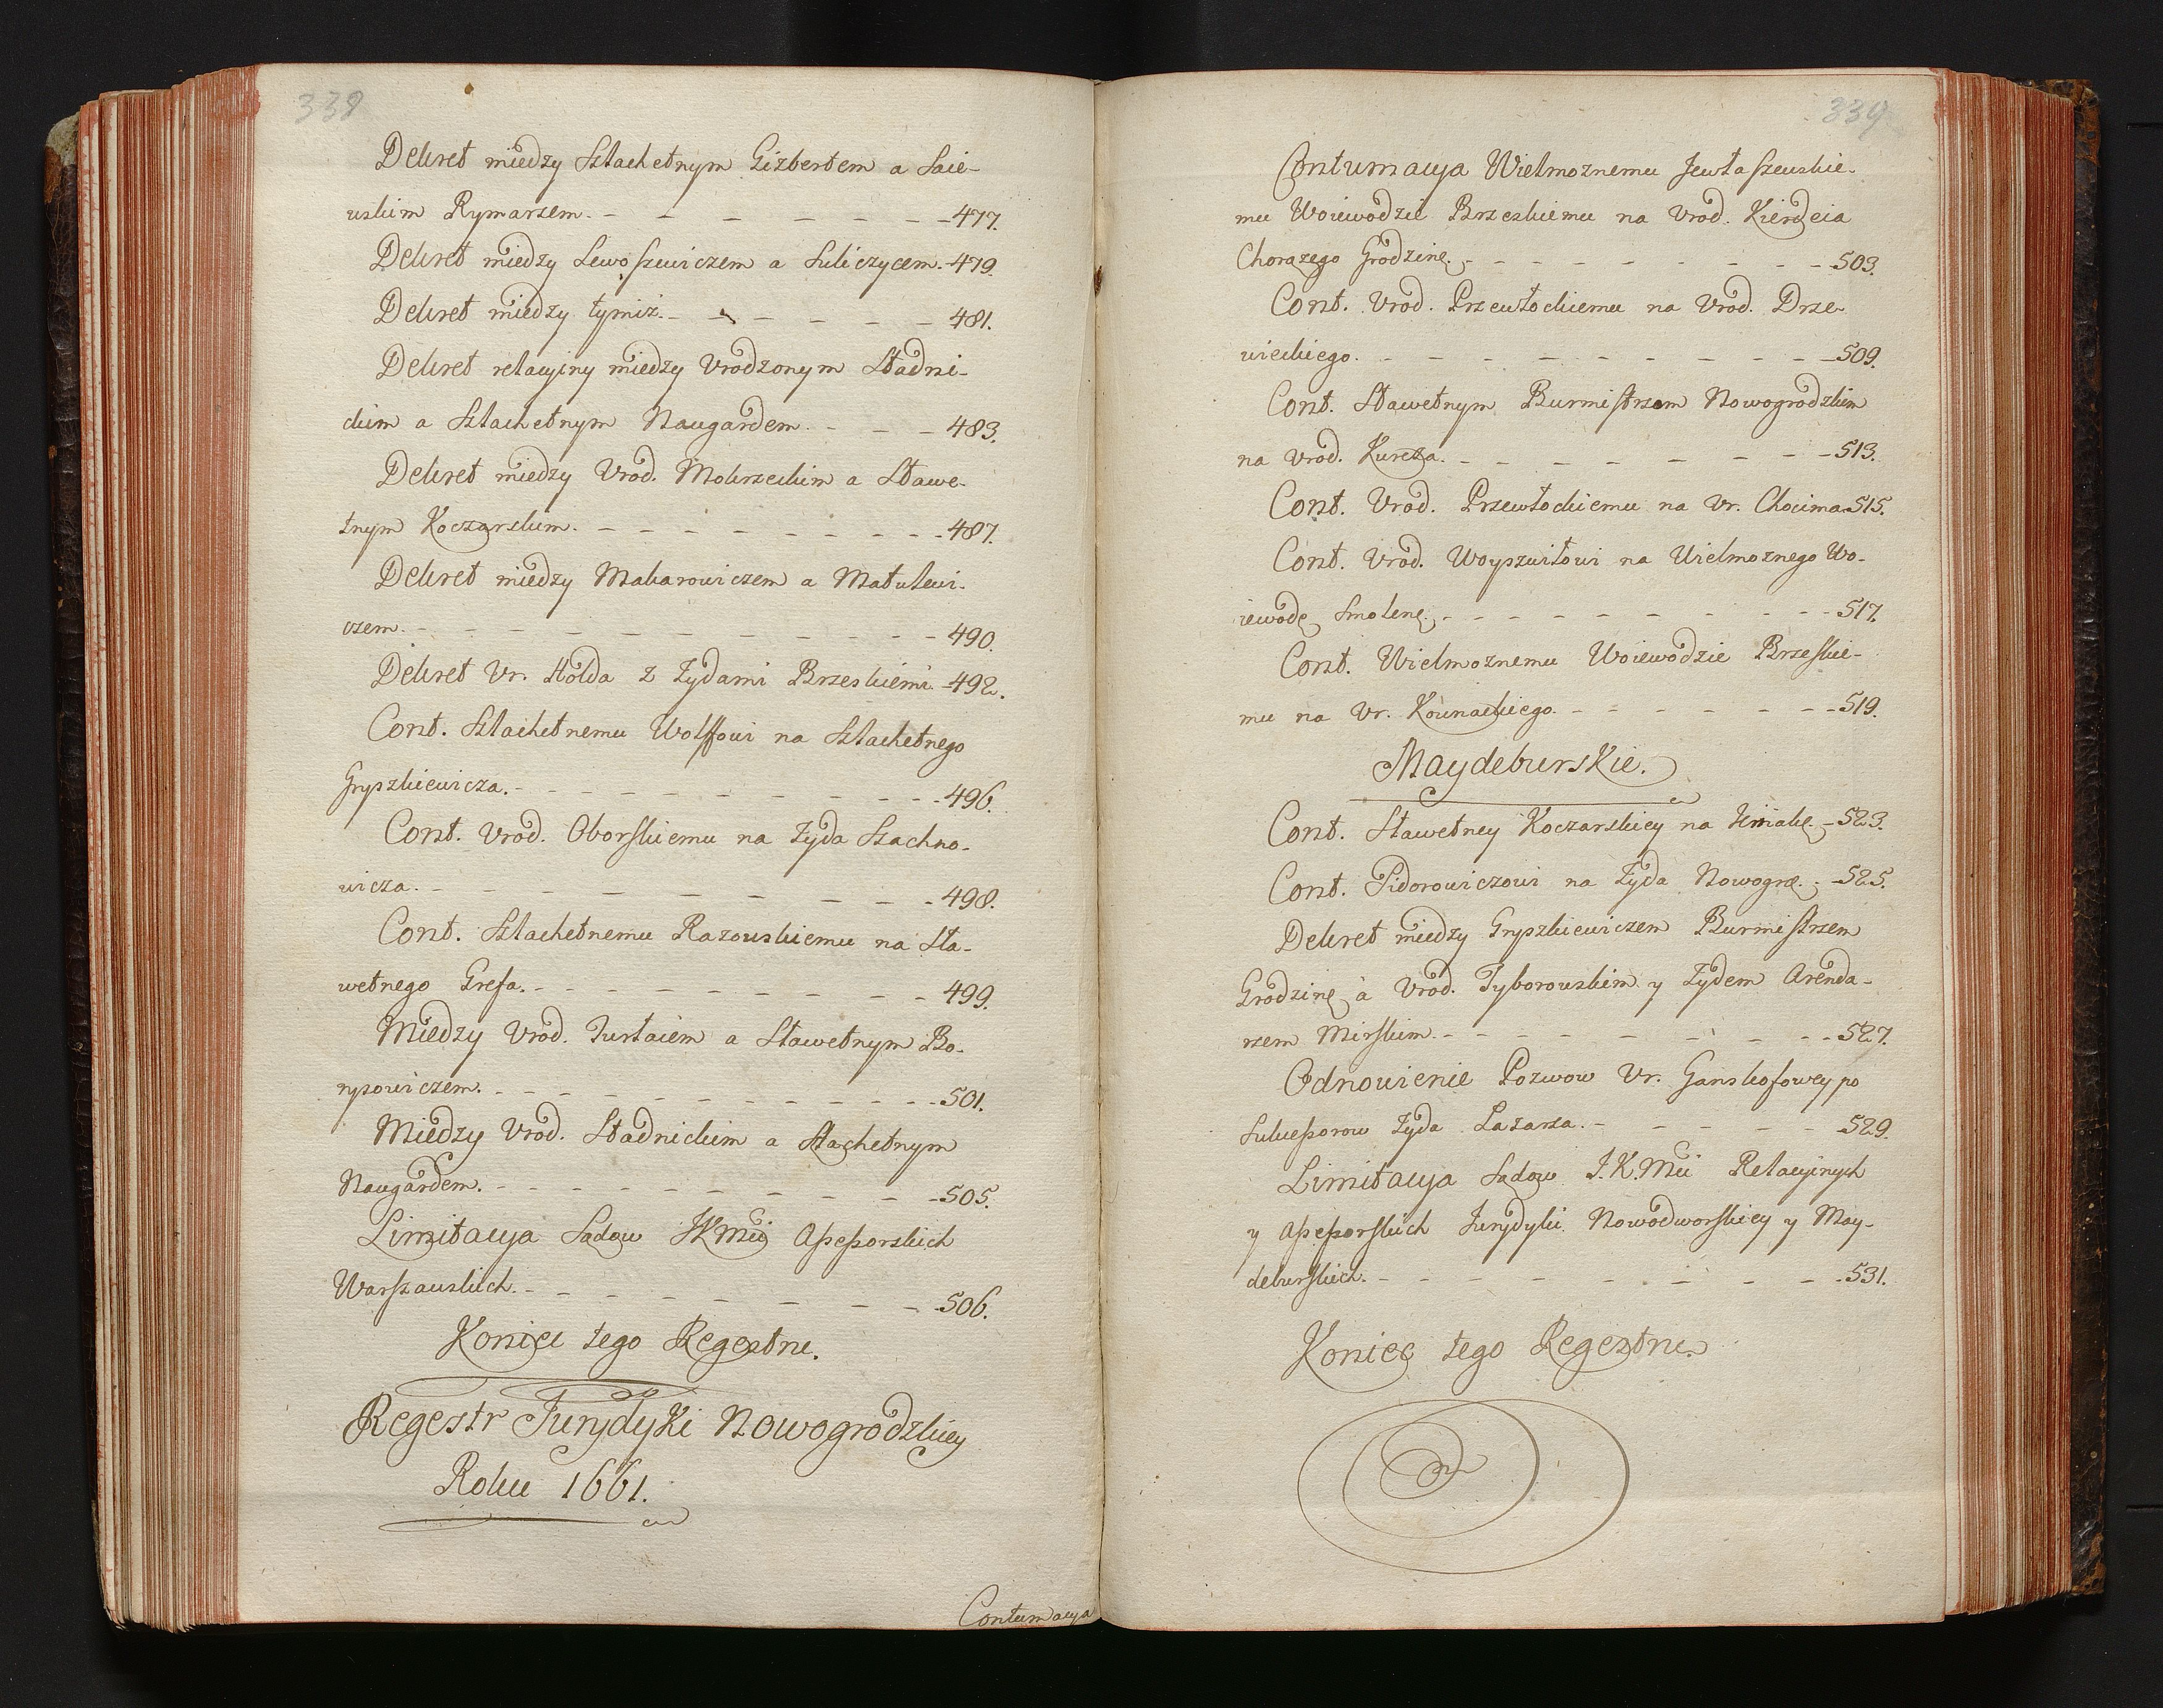 338
Dekret miedzy Szlachetnym Gizbertem a Saie-
wskim Rymarzem. - - - - - - - 477.
Dekret miedzy Lewoszewiczem a Suliczycem. - 479.
Dekret miedzy tymiż. - - - - - - 481.
Dekret relacyiny miedzy Urodzonym Stadni-
ckim a Szlachetnym Naugardem. - - - 483.
Dekret miedzy Urod. Mokrzeckim a Sławe-
tnym Koczarskim. - - - - - - - - 487.
Dekret miedzy Makarowiczem a Matulewi-
czem. - - - - - - - - - - 490.
Dekret Ur. Hołda z Żydami Brzeskiemi. - 492.
Cont. Szlachetnemu Wolffowi na Szlachetnego
Gryszkiewicza. - - - - - - - - - 496.
Cont. Urod. Oborskiemu na Żyda Szachno-
wicza. - - - - - - - - - 498.
Cont. Szlachetnemu Razowskiemu na Sła-
wetnego Grefa. - - - - - - - - 499.
Miedzy Urod. Turłaiem a Sławetnym Bo-
rysowiczem. - - - - - - - - - - 501.
Miedzy Urod. Stadnickim a Szlachetnym
Naugardem. - - - - - - - - - 505.
Limitacya Sądow JKMci Assessorskich
Warszawskich. - - - - - - - - 506.
Koniec tego Regestru.
Regestr Jurydyki Nowogrodzkiey
Roku 1661.
Contumacya
339
Contumacya Wielmoznemu Jewłaszewskie-
mu Woiewodzie Brzeskiemu na Urod. Kierdeia
Chorązego Grodzinę. - - - - - - - - 503.
Cont. Urod. Przewłockiemu na Urod. Drze-
wieckiego. - - - - - - - - - 509.
Cont. Sławetnym Burmistrzom Nowogrodzkim
na Urod. Kurcza. - - - - - - - - 513.
Cont. Urod. Przewłockiemu na Ur. Chocima. 515.
Cont. Urod. Woyszwiłowi na Wielmoznego Wo-
iewodę Smolenę. - - - - - - - - 517.
Cont. Wielmoznemu Woiewodzie Brzeskie-
mu na Ur. Kownackiego. - - - - - - - 519.
Maydeburskie.
Cont. Sławetney Koczarskiey na - 523.
Cont. Fidorowiczowi na Żyda Nowogrę. - 525.
Dekret miedzy Gryszkiewiczem Burmistrzem
Grodzinę a Urod. Tyborowskim y Żydem Arenda-
rzem Mirskim. - - - - - - - - 527.
Odnowienie Pozwow Ur. Ganskofowey po
Sukcessorow Żyda Łazarza. - - - - - 529.
Limitacya Sądow J.K.Mci Relacyinych
y Assessorskich Jurydyki Nowodworskiey y May-
deburskich. - - - - - - - - 531.
Koniec tego Regestru.